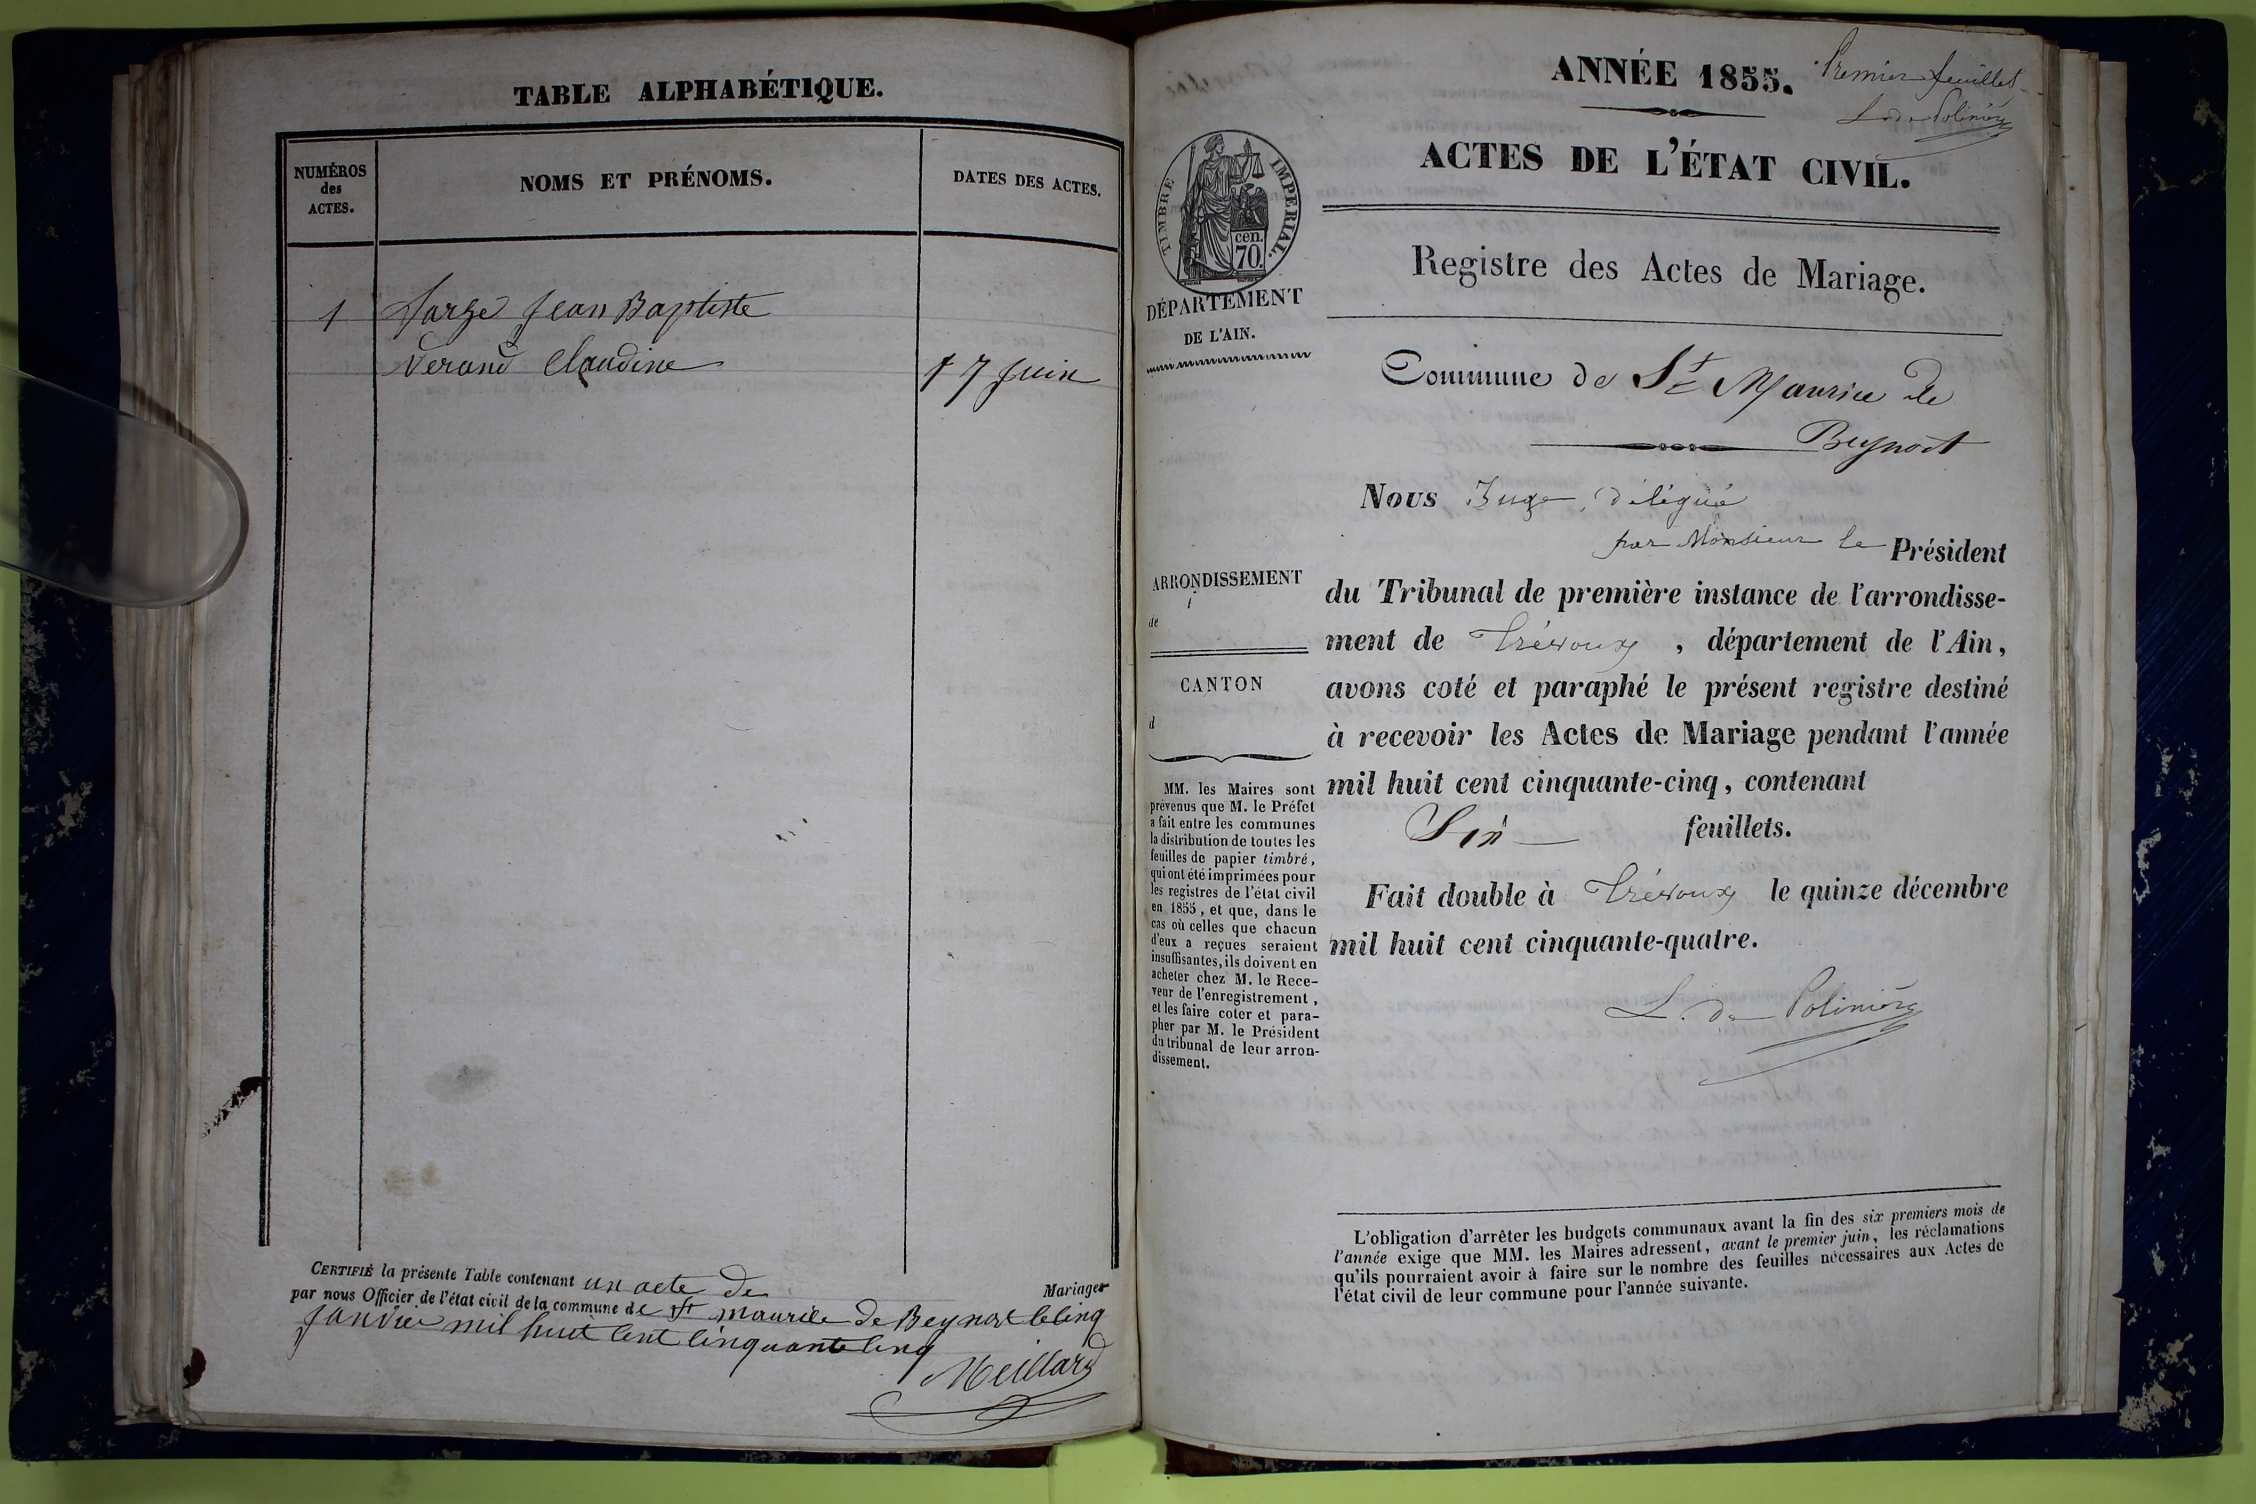 TABLE ALPHABÉTIQUE.
NUMÉROS
des
ACTES.
NOMS ET PRÉNOMS.
DATES DES ACTES.
1 Jean Baptiste
Verand Claudine 17 Juin
CERTIFIÉ la présente Table contenant un acte de Mariages
par nous Officier de l'état civil de la commune de St maurice de Beynost le cinq
Janvier mil huit cent cinquante cinq
Meillard
ANNÉE 1855.
Premier feuillet
L. de Polinière
ACTES DE L'ÉTAT CIVIL.
TIMBRE IMPERIAL.
cen.
70.
DÉPARTEMENT
DE L'AIN.
Registre des Actes de Mariage.
Commune de St Maurice de
Beynost
Nous Juge, délégué
par Monsieur le Président
du Tribunal de première instance de l'arrondisse-
ment de Trévoux, département de l'Ain,
avons coté et paraphé le présent registre destiné
à recevoir les Actes de Mariage pendant l'année
mil huit cent cinquante-cinq, contenant
Six feuillets.
Fait double à Trévoux le quinze décembre
mil huit cent cinquante-quatre.
L. de Polinière
ARRONDISSEMENT
de
CANTON
d
MM. les Maires sont
prévenus que M. le Préfet
a fait entre les communes
la distribution de toutes les
feuilles de papier timbré,
qui ont été imprimées pour
les registres de l'état civil
en 1855, et que, dans le
cas où celles que chacun
d'eux a reçues seraient
insuffisantes, ils doivent en
acheter chez M. le Rece-
veur de l'enregistrement,
et les faire coter et para-
pher par M. le Président
du tribunal de leur arron-
dissement.
L'obligation d'arrêter les budgets communaux avant la fin des six premiers mois de
l'année exige que MM. les Maires adressent, avant le premier juin, les réclamations
qu'ils pourraient avoir à faire sur le nombre des feuilles nécessaires aux Actes de
l'état civil de leur commune pour l'année suivante.